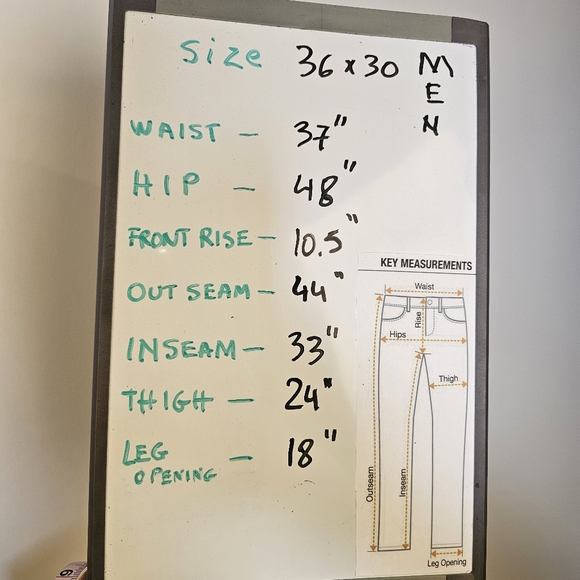 Size 36 x 30 MEN
WAIST - 37"
HIP - 48"
FRONT RISE - 10.5"
OUT SEAM - 44"
INSEAM - 33"
THIGH - 24"
LEG OPENING - 18"
KEY MEASUREMENTS
Waist
Rise
Hips
Thigh
Outseam
Inseam
Leg Opening